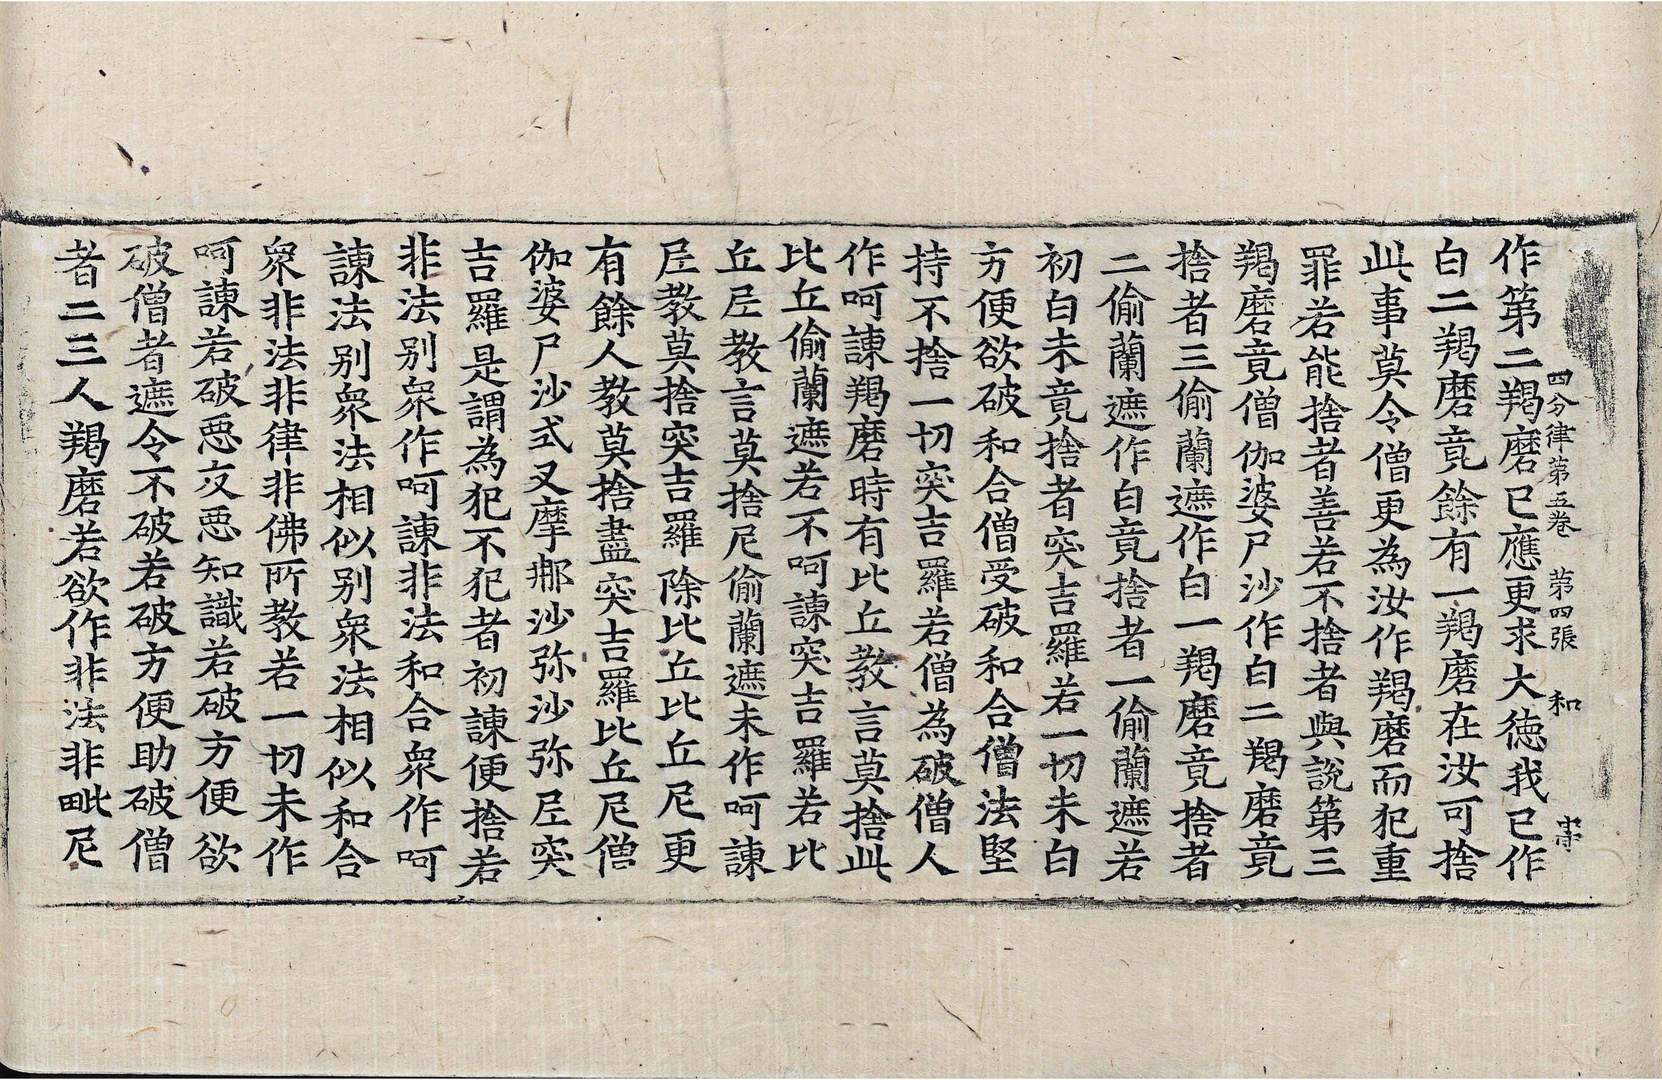 四分律第五卷 第四張 和
作第二羯磨已應更求大德我已作
白二羯磨竟餘有一羯磨在汝可捨
此事莫令僧更為汝作羯磨而犯重
罪若能捨者善若不捨者與說第三
羯磨竟僧伽婆尸沙作白二羯磨竟
捨者三偷蘭遮作白一羯磨竟捨者
二偷蘭遮作白竟捨者一偷蘭遮若
初白未竟捨者突吉羅若一切未白
方便欲破和合僧受破和合僧法堅
持不捨一切突吉羅若僧為破僧人
作呵諫羯磨時有比丘教言莫捨此
比丘偷蘭遮若不呵諫突吉羅若比
丘尼教言莫捨尼偷蘭遮未作呵諫
尼教莫捨突吉羅除比丘比丘尼更
有餘人教莫捨盡突吉羅比丘尼僧
伽婆尸沙式叉摩那沙弥沙弥尼突
吉羅是謂為犯不犯者初諫便捨若
非法別衆作呵諫非法和合衆作呵
諫法別衆法相似別衆法相似和合
衆非法非律非佛所教若一切未作
呵諫若破惡友惡知識若破方便欲
破僧者遮令不破若破方便助破僧
者二三人羯磨若欲作非法非毗尼